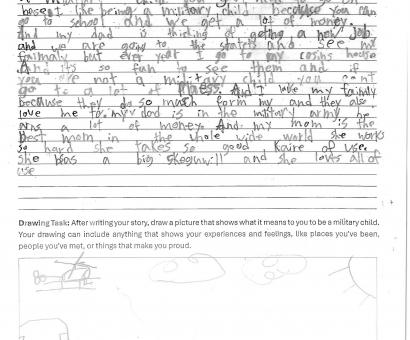 besest like being a military child because you can
go to school and we get a lot of money.
and my dad is thiking of geting a new job
and we are going to the states and see my
faimaly but ever year I go to my cosins house
And its so fun to see them and if
you are not a military child you can't
go to a lot of Plaess. And I love my faimly
because they do so much form my and they also
love me to. my dad is in the military army he
a lot of money. And my mom is the
best mom in the whole wide world she works
so hard she takes so good Kaire of use.
She has a big and she lovs all of
use
Drawing Task: After writing your story, draw a picture that shows what it means to you to be a military child.
Your drawing can include anything that shows your experiences and feelings, like places you've been,
people you've met, or things that make you proud.